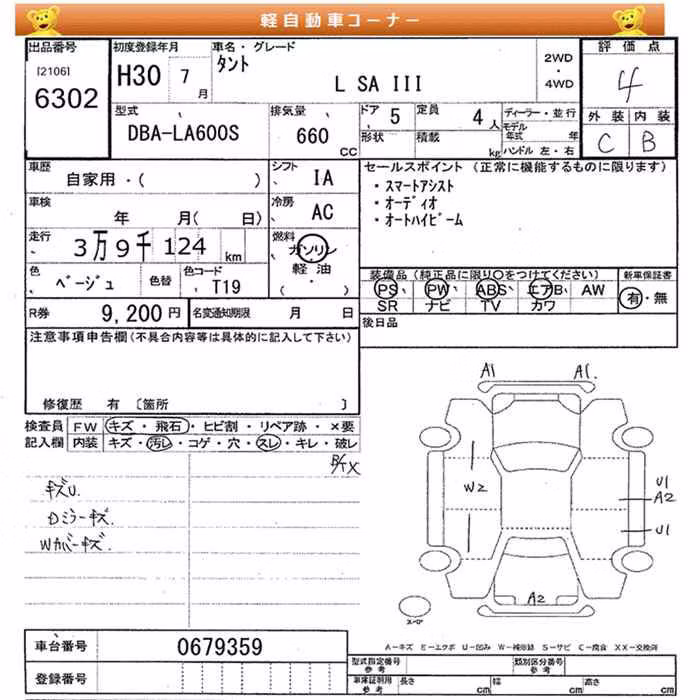 軽自動車コーナー
出品番号
[2106]
6302
初度登録年月
H30 7
月
車名・グレード
タント
L SA III
2WD
・
4WD
評価点
4
外装 内装
C B
型式
DBA-LA600S
排気量
660
CC
ドア
5
定員
4
人
形状
積載
kg
ディーラー・並行
モデル
年式 年
ハンドル 左・右
車歴
自家用・( )
シフト
IA
車検
年 月( 日)
冷房
AC
走行
3万9千124
km
燃料
ガソリン
軽油
( ・ )
色
ベージュ
色替
色コード
T19
R券
9,200円
名変通知期限 月 日
セールスポイント(正常に機能するものに限ります)
・スマートアシスト
・オーディオ
・オートハイビーム
装備品(純正品に限り〇をつけてください)
PS、 PW、 ABS、 エアB、 AW
SR ナビ TV カワ
新車保証書
有・無
後日品
注意事項申告欄(不具合内容等は具体的に記入して下さい)
修復歴 有 〔箇所 〕
検査員
記入欄
FW キズ・飛石・ヒビ割・リペア跡・×要
内装 キズ・汚レ・コゲ・穴・スレ・キレ・破レ
キズU.
Dミラーキズ.
Wカバーキズ.
A1 A1.
W2
U1
A2
U1
A2
スペア
A-キズ E-エクボ U-凹み W-補修跡 S-サビ C-腐食 XX-交換済
車台番号
0679359
登録番号
型式指定番号
参考
類別区分番号
参考
車庫証明用
参考
長さ cm 幅 cm 高さ cm